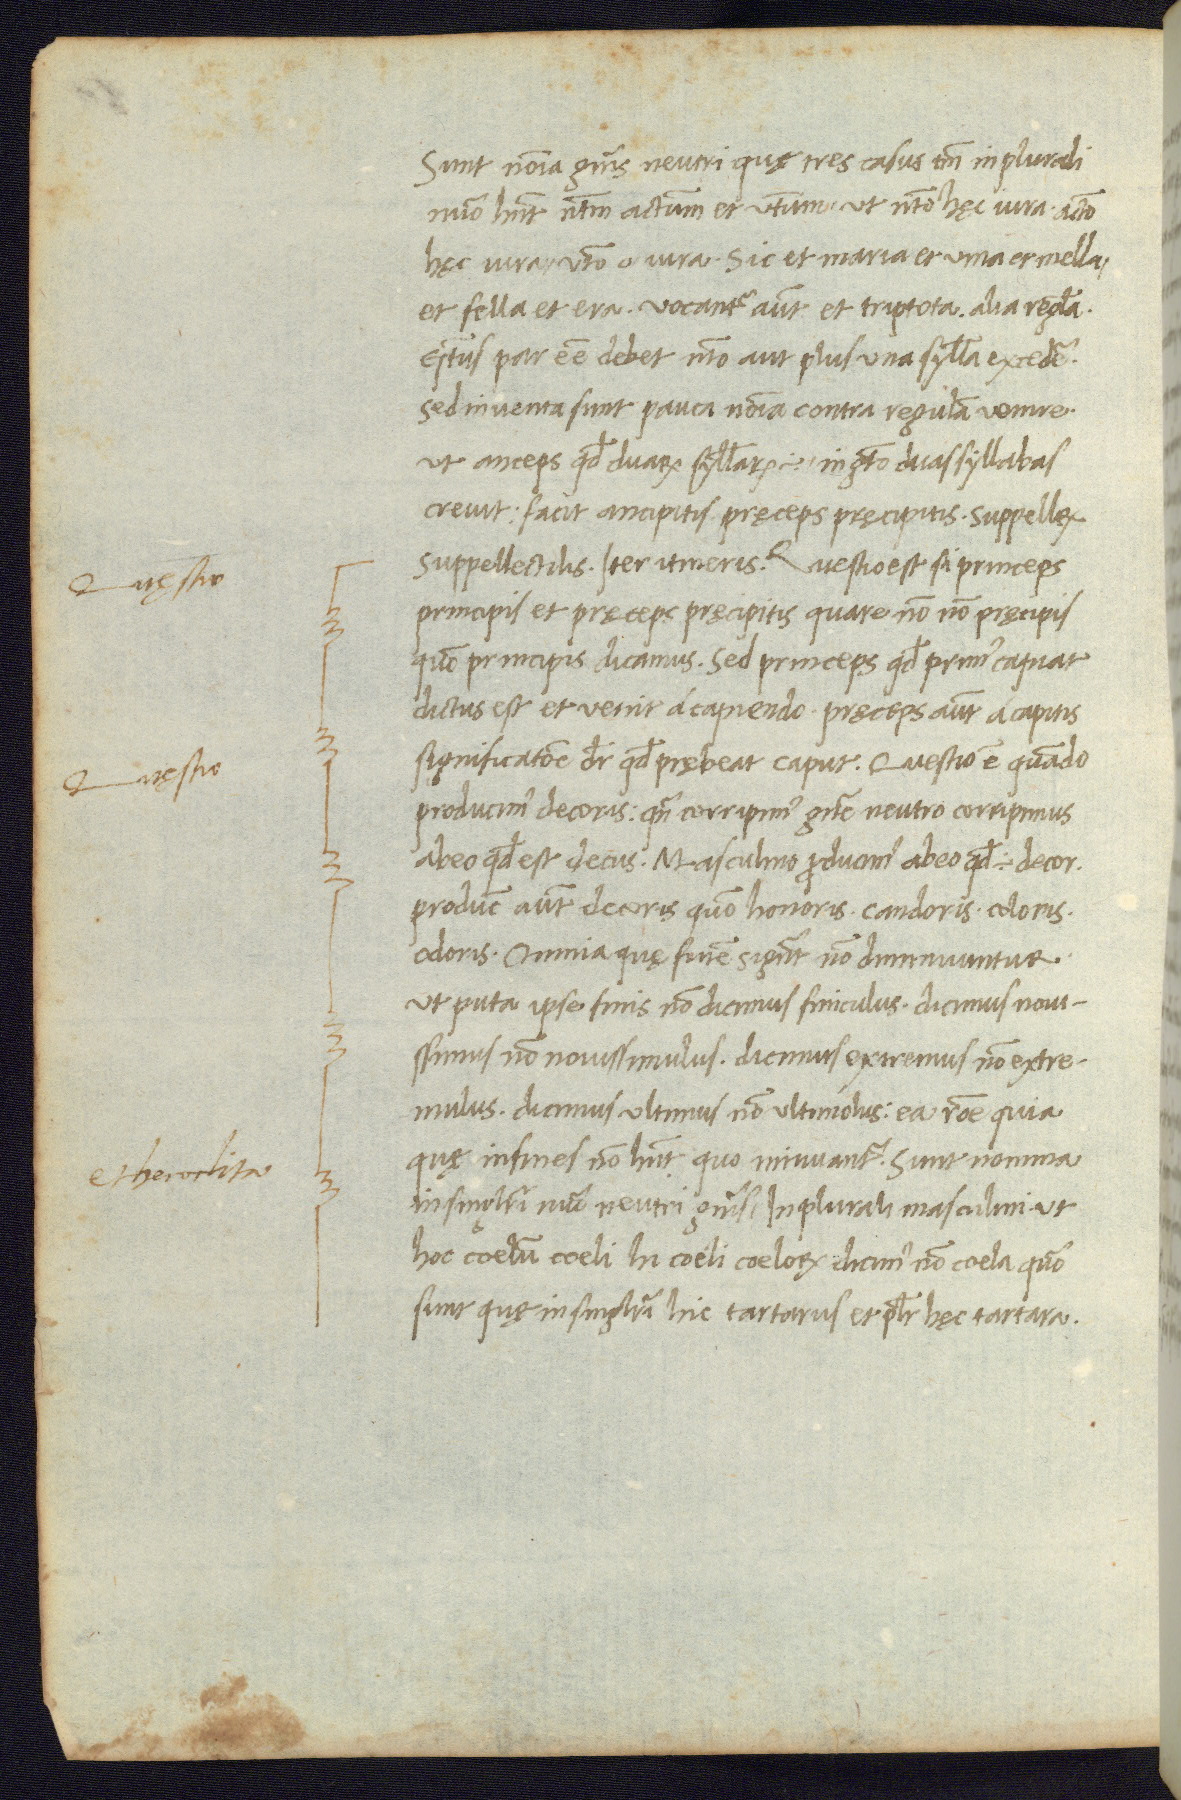 Sunt nōīa gn̄is neutri quę tres casus tm̄ in plurali
nuō hn̄t ntm̄ actūm et vtūm. ut ntō hęc iura. actō
hęc iura, vtō o iura. Sic et maria et vina et mella,
et fella et era. vocant᷑ aūt et triptota. alia regl̄a.
Gtūs par eē debet ntō aut plus vna syll̄a excedē.
Sed inventa sunt pauca nōīa contra regulā venire.
ut anceps qd̄ duaꝝ syll̄aꝝ ÷ in gtō duas syllabas
crevit: facit ancipitis. pręceps pręcipitis. Suppellex
Suppellectilis. Iter itineris. Quęstio est si princeps
principis et pręceps pręcipitis quare nō nō pręcipis
quō principis dicamus. Sed princeps qd̄ prim᷒ capiat
dictus est et venit á capiendo. pręceps aūt á capitis
significatōe dr̄ qd̄ prębeat caput. Quęstio ē quādo
producim᷒ decoris: qn̄ corripim᷒ gn̄e neutro corripimus
ab eo qd̄ est decus. Masculino ꝓducim᷒ ab eo qd̄ ÷ decor.
producē aūt decoris quō honoris. candoris. coloris.
odoris. Omnia quę finē sign̄t nō diminuuntur.
ut puta ipse finis nō dicimus finiculus. dicimus noui-
ssimus nō novissimulus. dicimus extremus nō extre-
mulus. dicimus ultimus nō ultimolus: ea rōe quia
quę in fines nō hn̄t quo minuant᷑. Sunt nomina
in singlr̄i nuō neutri gn̄is, In plurali masculini. ut
hoc coelūm coeli hi coeli coeloꝝ dicim᷒ nō coela quō
sunt quę in singlr̄i hic tartarus et plr̄ hęc tartara.
Quęstio
Quęstio
etheroclita